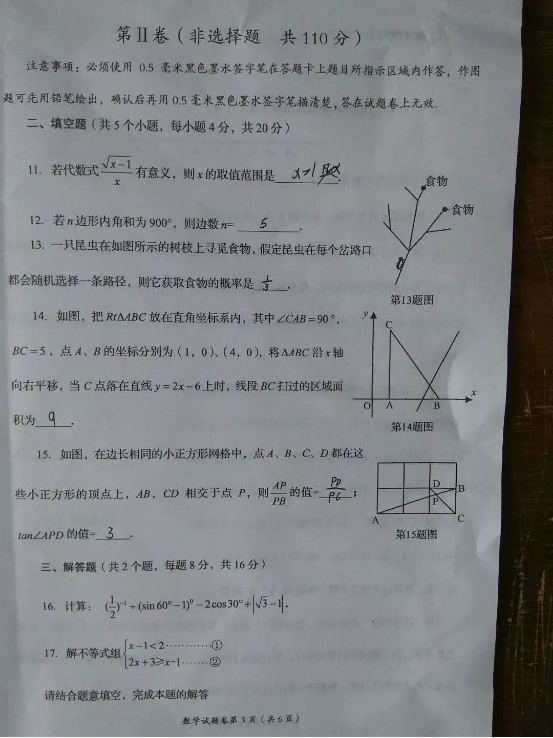 第Ⅱ卷（非选择题 共110分）
注意事项：必须使用 0.5 毫米黑色墨水签字笔在答题卡上题目所指示区域内作答，作图
题可先用铅笔绘出，确认后再用 0.5 毫米黑色墨水签字笔描清楚，答在试题卷上无效.
二、填空题（共5个小题，每小题4分，共20分）
11. 若代数式 √(x−1)/x 有意义，则x的取值范围是 x>1
食物
食物
12. 若n边形内角和为900°，则边数n= 5 .
13. 一只昆虫在如图所示的树枝上寻觅食物，假定昆虫在每个岔路口
都会随机选择一条路径，则它获取食物的概率是 1/3 .
第13题图
14. 如图，把Rt△ABC放在直角坐标系内，其中∠CAB=90°，
BC=5，点A、B的坐标分别为（1，0）、（4，0），将△ABC沿x轴
向右平移，当C点落在直线y=2x−6上时，线段BC扫过的区域面
积为 9 .
y
C
O A B x
第14题图
15. 如图，在边长相同的小正方形网格中，点A、B、C、D都在这
些小正方形的顶点上，AB，CD 相交于点 P，则 AP/PB 的值= PD/PC ；
tan∠APD的值= 3 .
D
B
P
A C
第15题图
三、解答题（共2个题，每题8分，共16分）
16. 计算： (1/2)⁻¹+(sin60°−1)⁰−2cos30°+|√3−1|.
17. 解不等式组{x−1<2…………①
2x+3≥x−1……②
请结合题意填空，完成本题的解答
数学试题卷第3页（共6页）